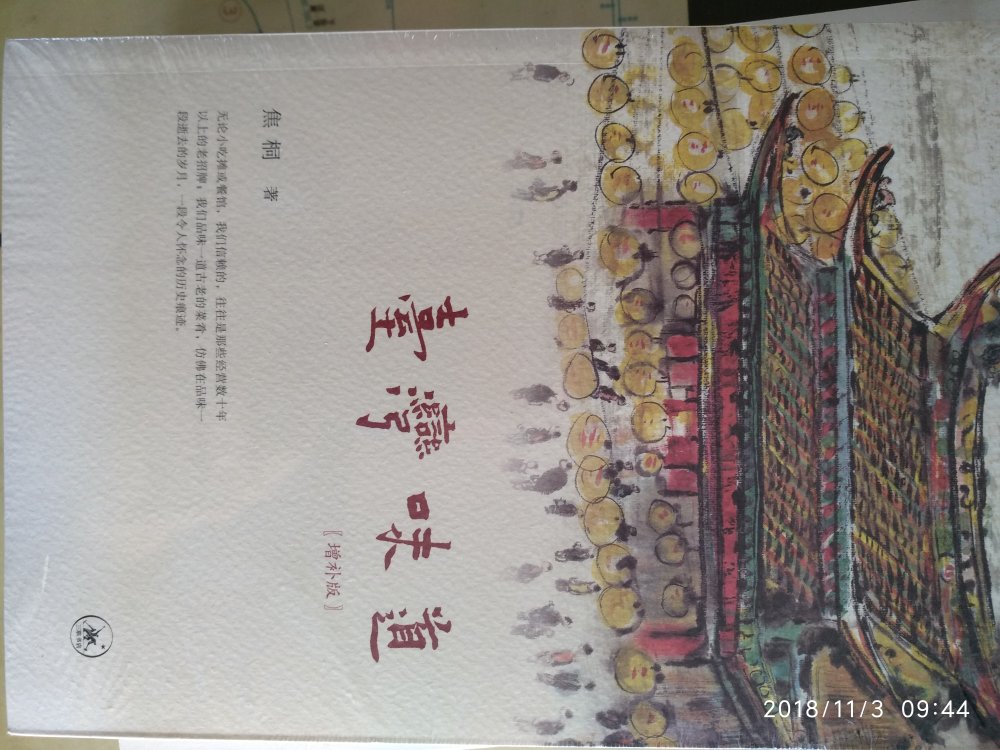 臺灣味道
〖增补版〗
焦桐 著
无论小吃摊或餐馆，我们信赖的，往往是那些经营数十年
以上的老招牌；我们品味一道古老的菜肴，仿佛在品味一
段逝去的岁月，一段令人怀念的历史痕迹。
三联书店
2018/11/3 09:44